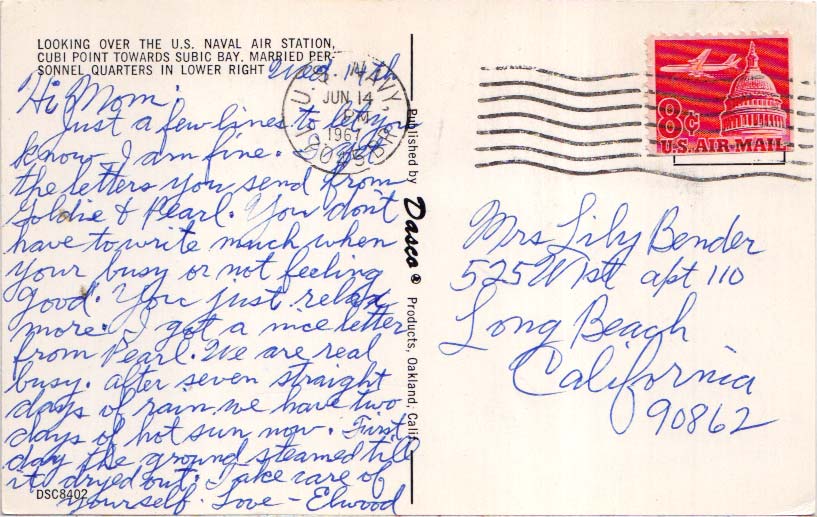 LOOKING OVER THE U.S. NAVAL AIR STATION,
CUBI POINT TOWARDS SUBIC BAY. MARRIED PER-
SONNEL QUARTERS IN LOWER RIGHT
Wed. 14th
Hi Mom:
Just a few lines to let you
know I am fine. Got
the letters you send from
Goldie & Pearl. You don't
have to write much when
your busy or not feeling
good. You just relax
more. I got a nice letter
from Pearl. We are real
busy. after seven straight
days of rain we have two
days of hot sun now. First
day the ground steamed till
it dryed out. Take care of
yourself. Love - Elwood
DSC8402
Published by Dasco® Products, Oakland, Calif.
U.S. NAVY
JUN 14
PM
1967
8¢
U.S. AIR MAIL
Mrs Lily Bender
525 W 1st apt 110
Long Beach
California
90862